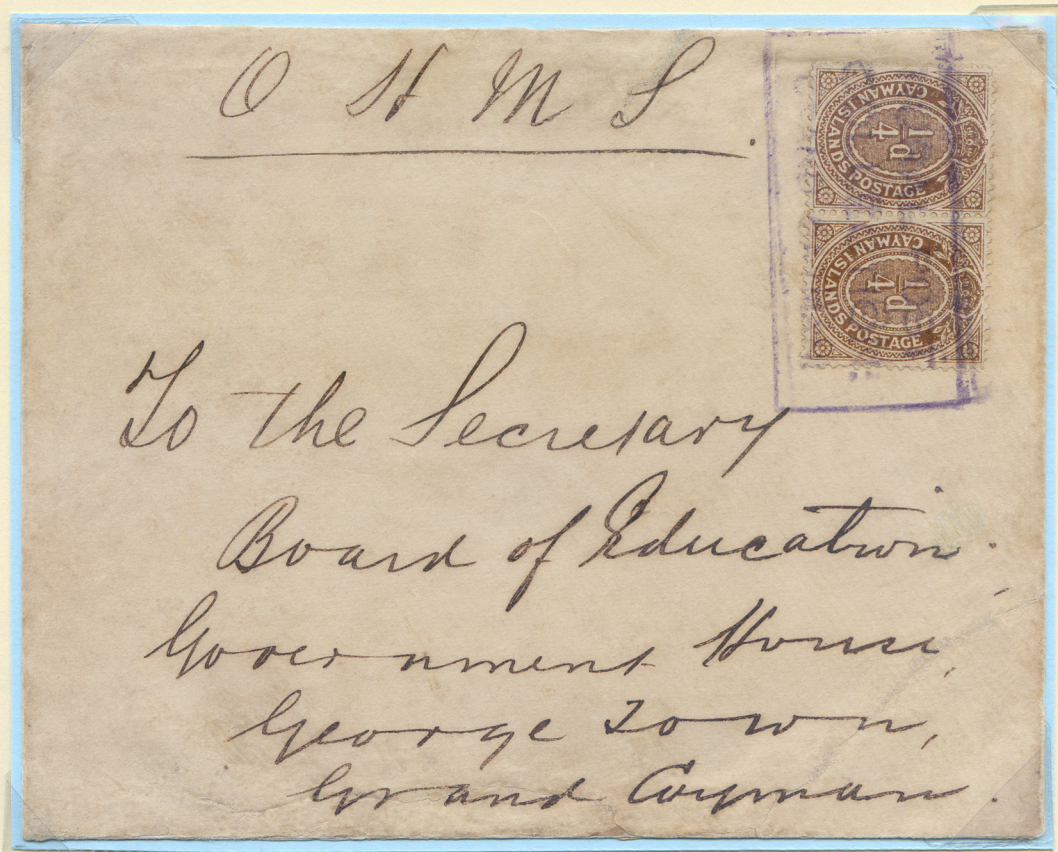 O H M S.
CAYMAN ISLANDS POSTAGE
1/4 d
CAYMAN ISLANDS POSTAGE
1/4 d
To the Secretary
Board of Education.
Government House,
George Town,
Grand Cayman.